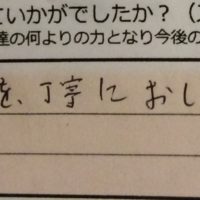 ていかがでしたか？（
達の何よりの力となり今後の
を、丁寧に おし